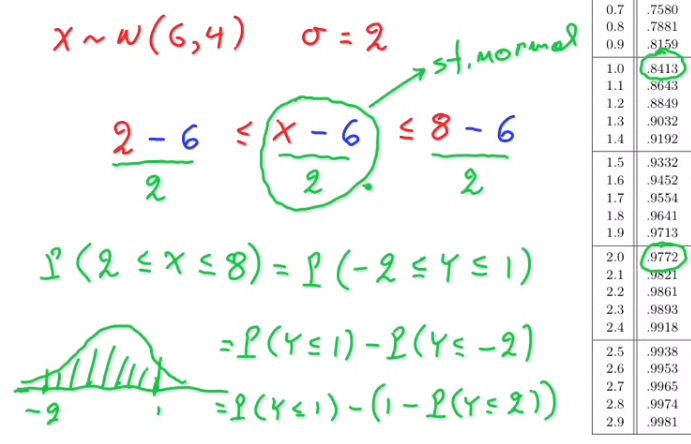 X ~ N(6,4) σ = 2
st. normal
2 - 6 ≤ X - 6 ≤ 8 - 6
2 2 2
P(2 ≤ X ≤ 8) = P(-2 ≤ Y ≤ 1)
= P(Y ≤ 1) - P(Y ≤ -2)
= P(Y ≤ 1) - (1 - P(Y ≤ 2))
-2 1
0.7 .7580
0.8 .7881
0.9 .8159
1.0 .8413
1.1 .8643
1.2 .8849
1.3 .9032
1.4 .9192
1.5 .9332
1.6 .9452
1.7 .9554
1.8 .9641
1.9 .9713
2.0 .9772
2.1 .9821
2.2 .9861
2.3 .9893
2.4 .9918
2.5 .9938
2.6 .9953
2.7 .9965
2.8 .9974
2.9 .9981